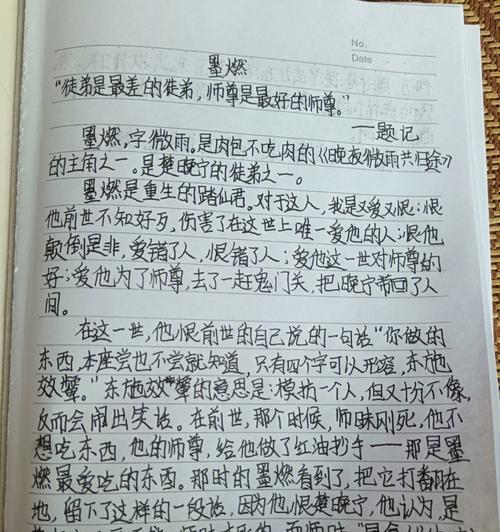 No.
Date
墨燃
“徒弟是最差的徒弟，师尊是最好的师尊。”
——题记
墨燃，字微雨。是肉包不吃肉的《晚夜微雨共归途》
的主角之一。是楚晚宁的徒弟之一。
墨燃是重生的踏仙君。对于这人，我是又爱又恨：恨
他前世不知好歹，伤害了在这世上唯一爱他的人；恨他
颠倒是非，爱错了人，恨错了人；爱他这一世对师尊的
好；爱他为了师尊，去了一赶鬼门关，把晚宁带回了人
间。
在这一世，他恨前世的自己说的一句话“你做的
东西，本座尝也不尝就知道，只有四个字可以形容，东施
效颦。”东施效颦的意思是：模仿一个人，但又十分不像，
反而会闹出笑话。在前世，那个时候，师昧刚死，他不
想吃东西，他的师尊，给他做了红油抄手——那是墨
燃最爱吃的东西。那时的墨燃看到了，把它打翻在
地，留下了这样的一段话，因为他恨楚晚宁，他认为，是